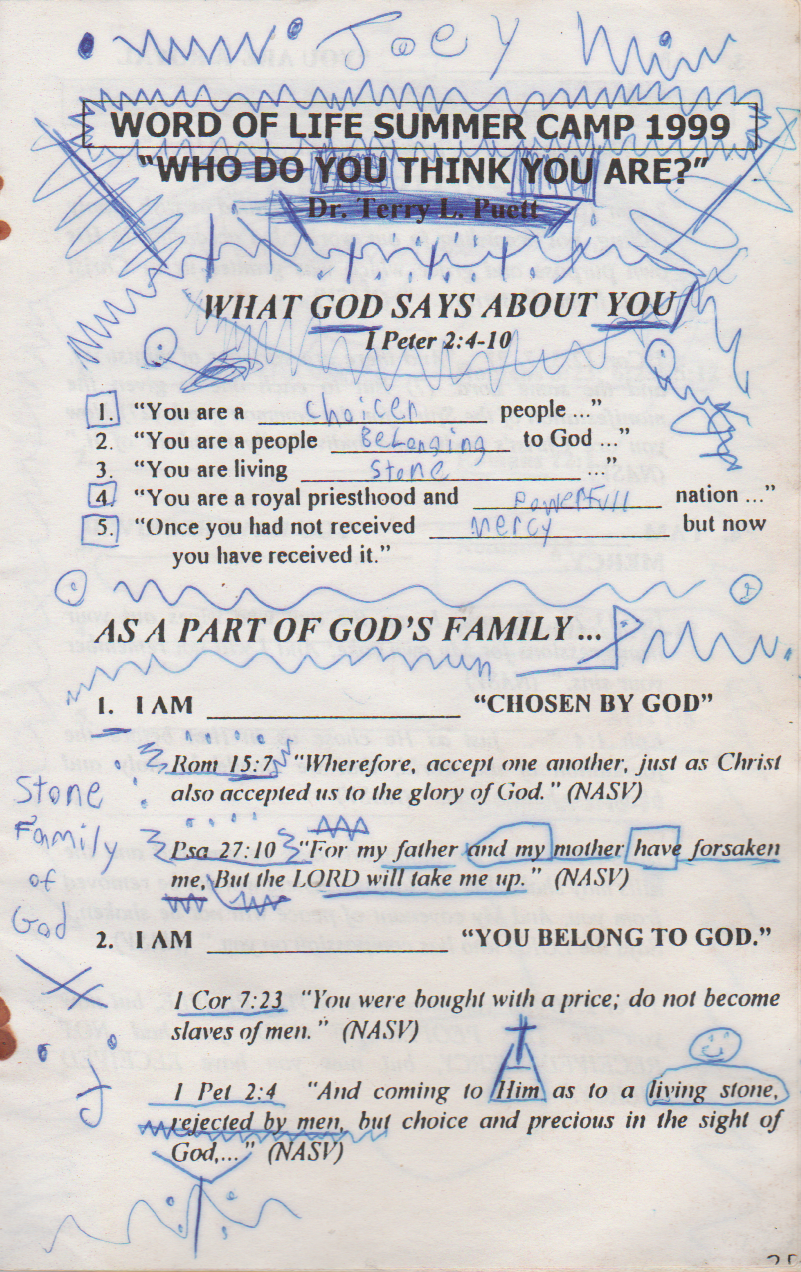 Joey
WORD OF LIFE SUMMER CAMP 1999
"WHO DO YOU THINK YOU ARE?"
Dr. Terry L. Puett
WHAT GOD SAYS ABOUT YOU
I Peter 2:4-10
1. "You are a choicen people ..."
2. "You are a people Belonging to God ..."
3. "You are living Stone ..."
4. "You are a royal priesthood and Powerfull nation ..."
5. "Once you had not received Mercy but now
you have received it."
AS A PART OF GOD'S FAMILY...
1. I AM ____________ "CHOSEN BY GOD"
Rom 15:7 "Wherefore, accept one another, just as Christ
also accepted us to the glory of God." (NASV)
Stone
Family
of
God
Psa 27:10 "For my father and my mother have forsaken
me, But the LORD will take me up." (NASV)
2. I AM ____________ "YOU BELONG TO GOD."
1 Cor 7:23 "You were bought with a price; do not become
slaves of men." (NASV)
1 Pet 2:4 "And coming to Him as to a living stone,
rejected by men, but choice and precious in the sight of
God,..." (NASV)